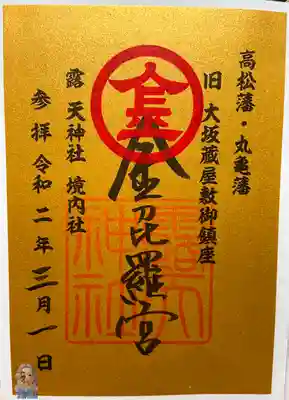 高松藩・丸亀藩
旧 大坂蔵屋敷御鎮座
金
金毘羅宮
露天神社
露 天神社 境内社
参拝 令和二年三月一日